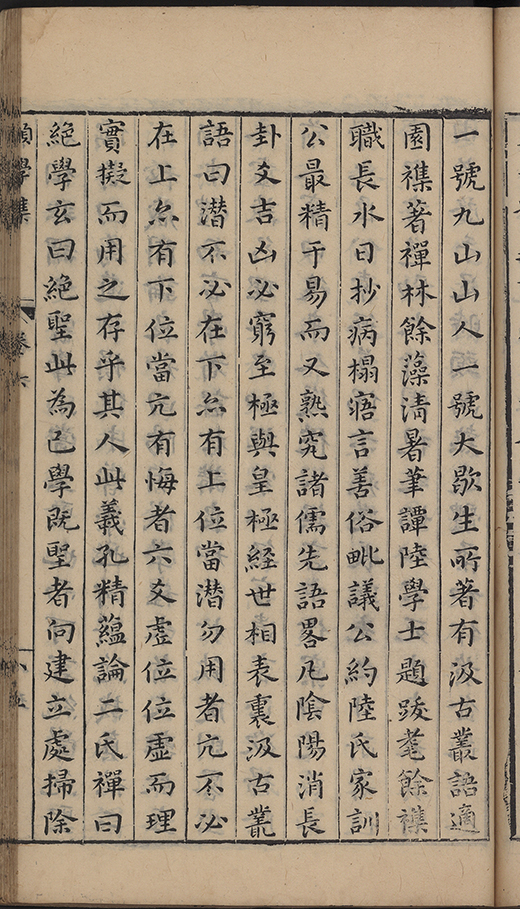 一號九山山人一號大歇生所著有汲古叢語適
園襍著禪林餘藻淸暑筆譚陸學士題跋耄餘襍
職長水日抄病榻寤言善俗毗議公約陸氏家訓
公最精于易而又熟究諸儒先語畧凡陰陽消長
卦爻吉凶必窮至極與皇極経世相表裏汲古叢
語曰潜不必在下亦有上位當潜勿用者亢不必
在上亦有下位當亢有悔者六爻虚位位虚而理
實擬而用之存乎其人此義孔精蘊論二氏禪曰
絶學玄曰絶聖此為已學既聖者向建立處掃除
學集 卷六